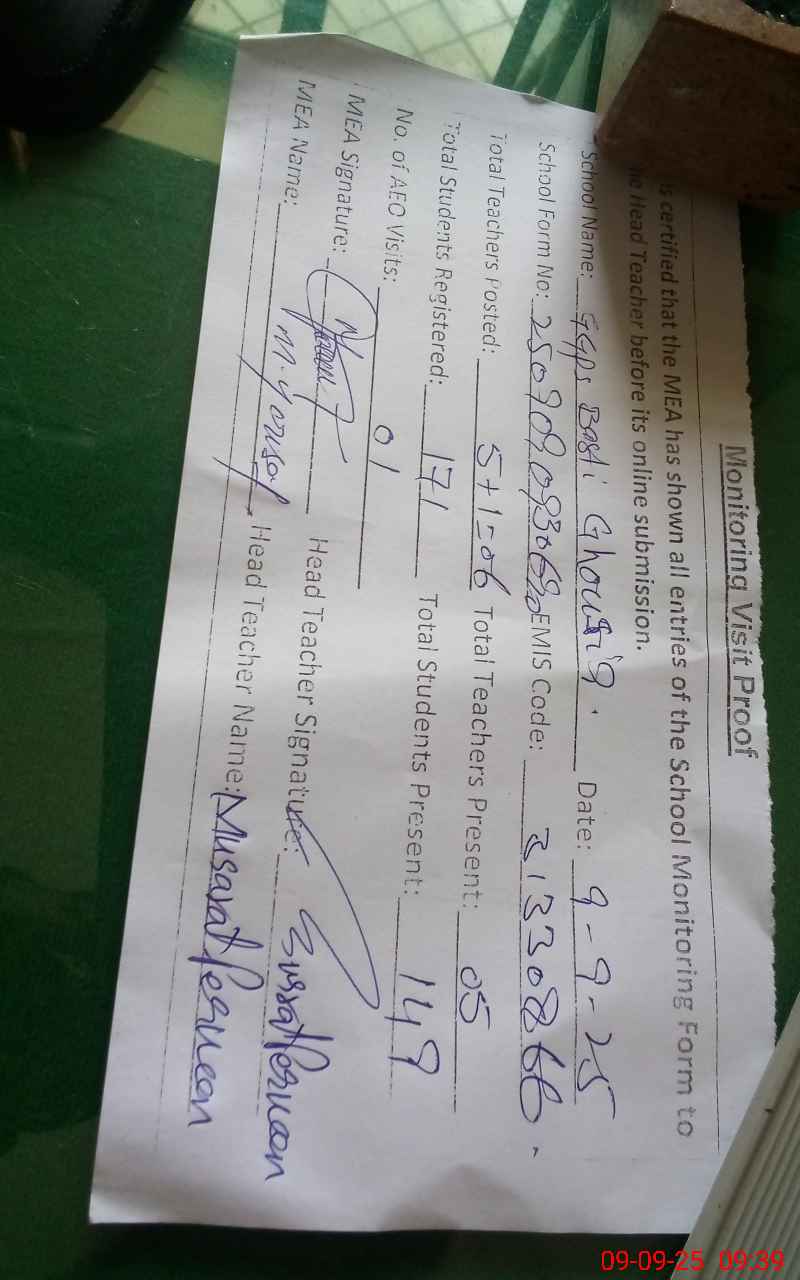 Monitoring Visit Proof
is certified that the MEA has shown all entries of the School Monitoring Form to
Head Teacher before its online submission.
School Name: GGPS Basti Ghousia. Date: 9-9-25
School Form No: EMIS Code: 31330866.
Total Teachers Posted: 5+1=06 Total Teachers Present: 05
Total Students Registered: 171 Total Students Present: 149
No. of AEO Visits: 01
MEA Signature: Head Teacher Signature: Musarat Perveen
MEA Name: M. Yousaf Head Teacher Name: Musarat Perveen
09-09-25 09:39